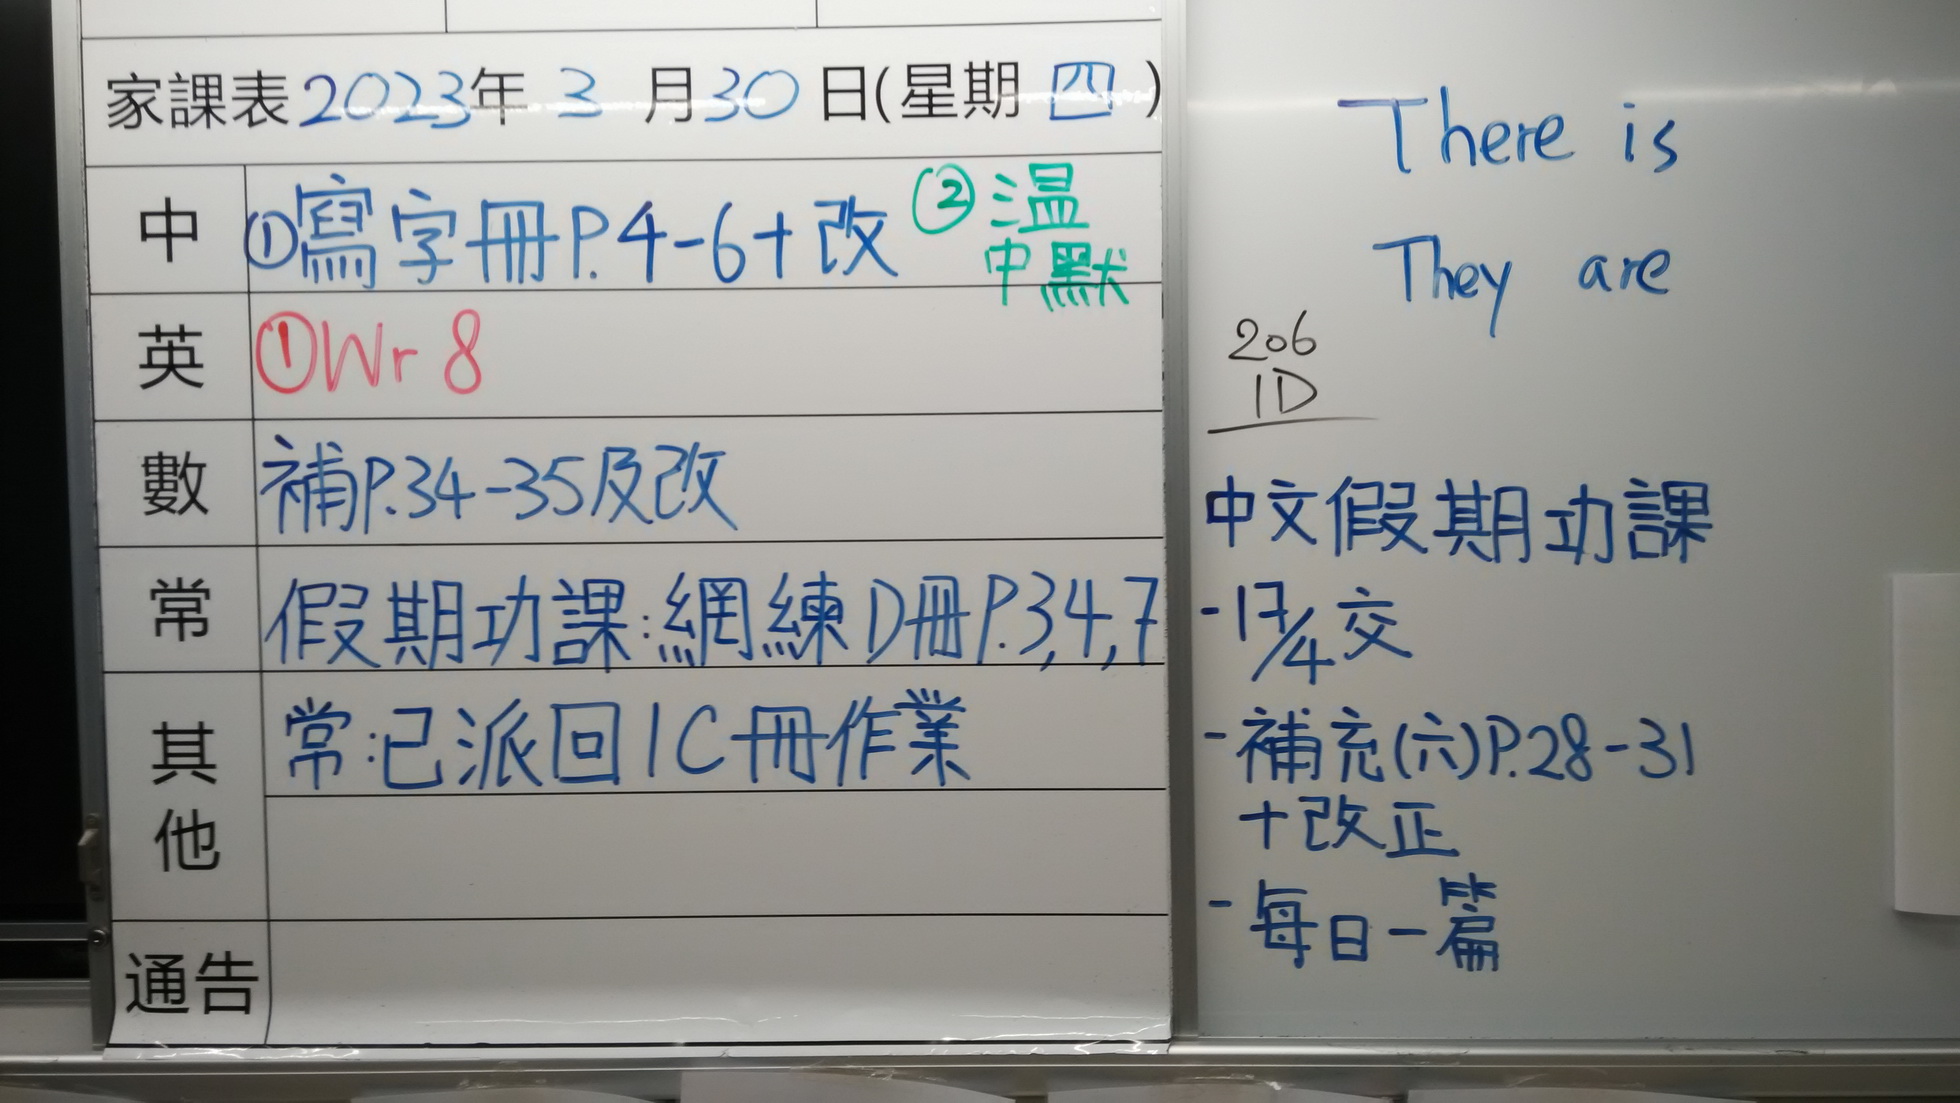 家課表2023年3月30日(星期四)
中 ①寫字冊P.4-6+改 ②溫
中默
英 ①Wr 8
數 補P.34-35及改
常 假期功課:網練D冊P.3,4,7
其他 常:已派回1C冊作業
通告
There is
They are
206
1D
中文假期功課
-17/4交
-補充(六)P.28-31
+改正
-每日一篇